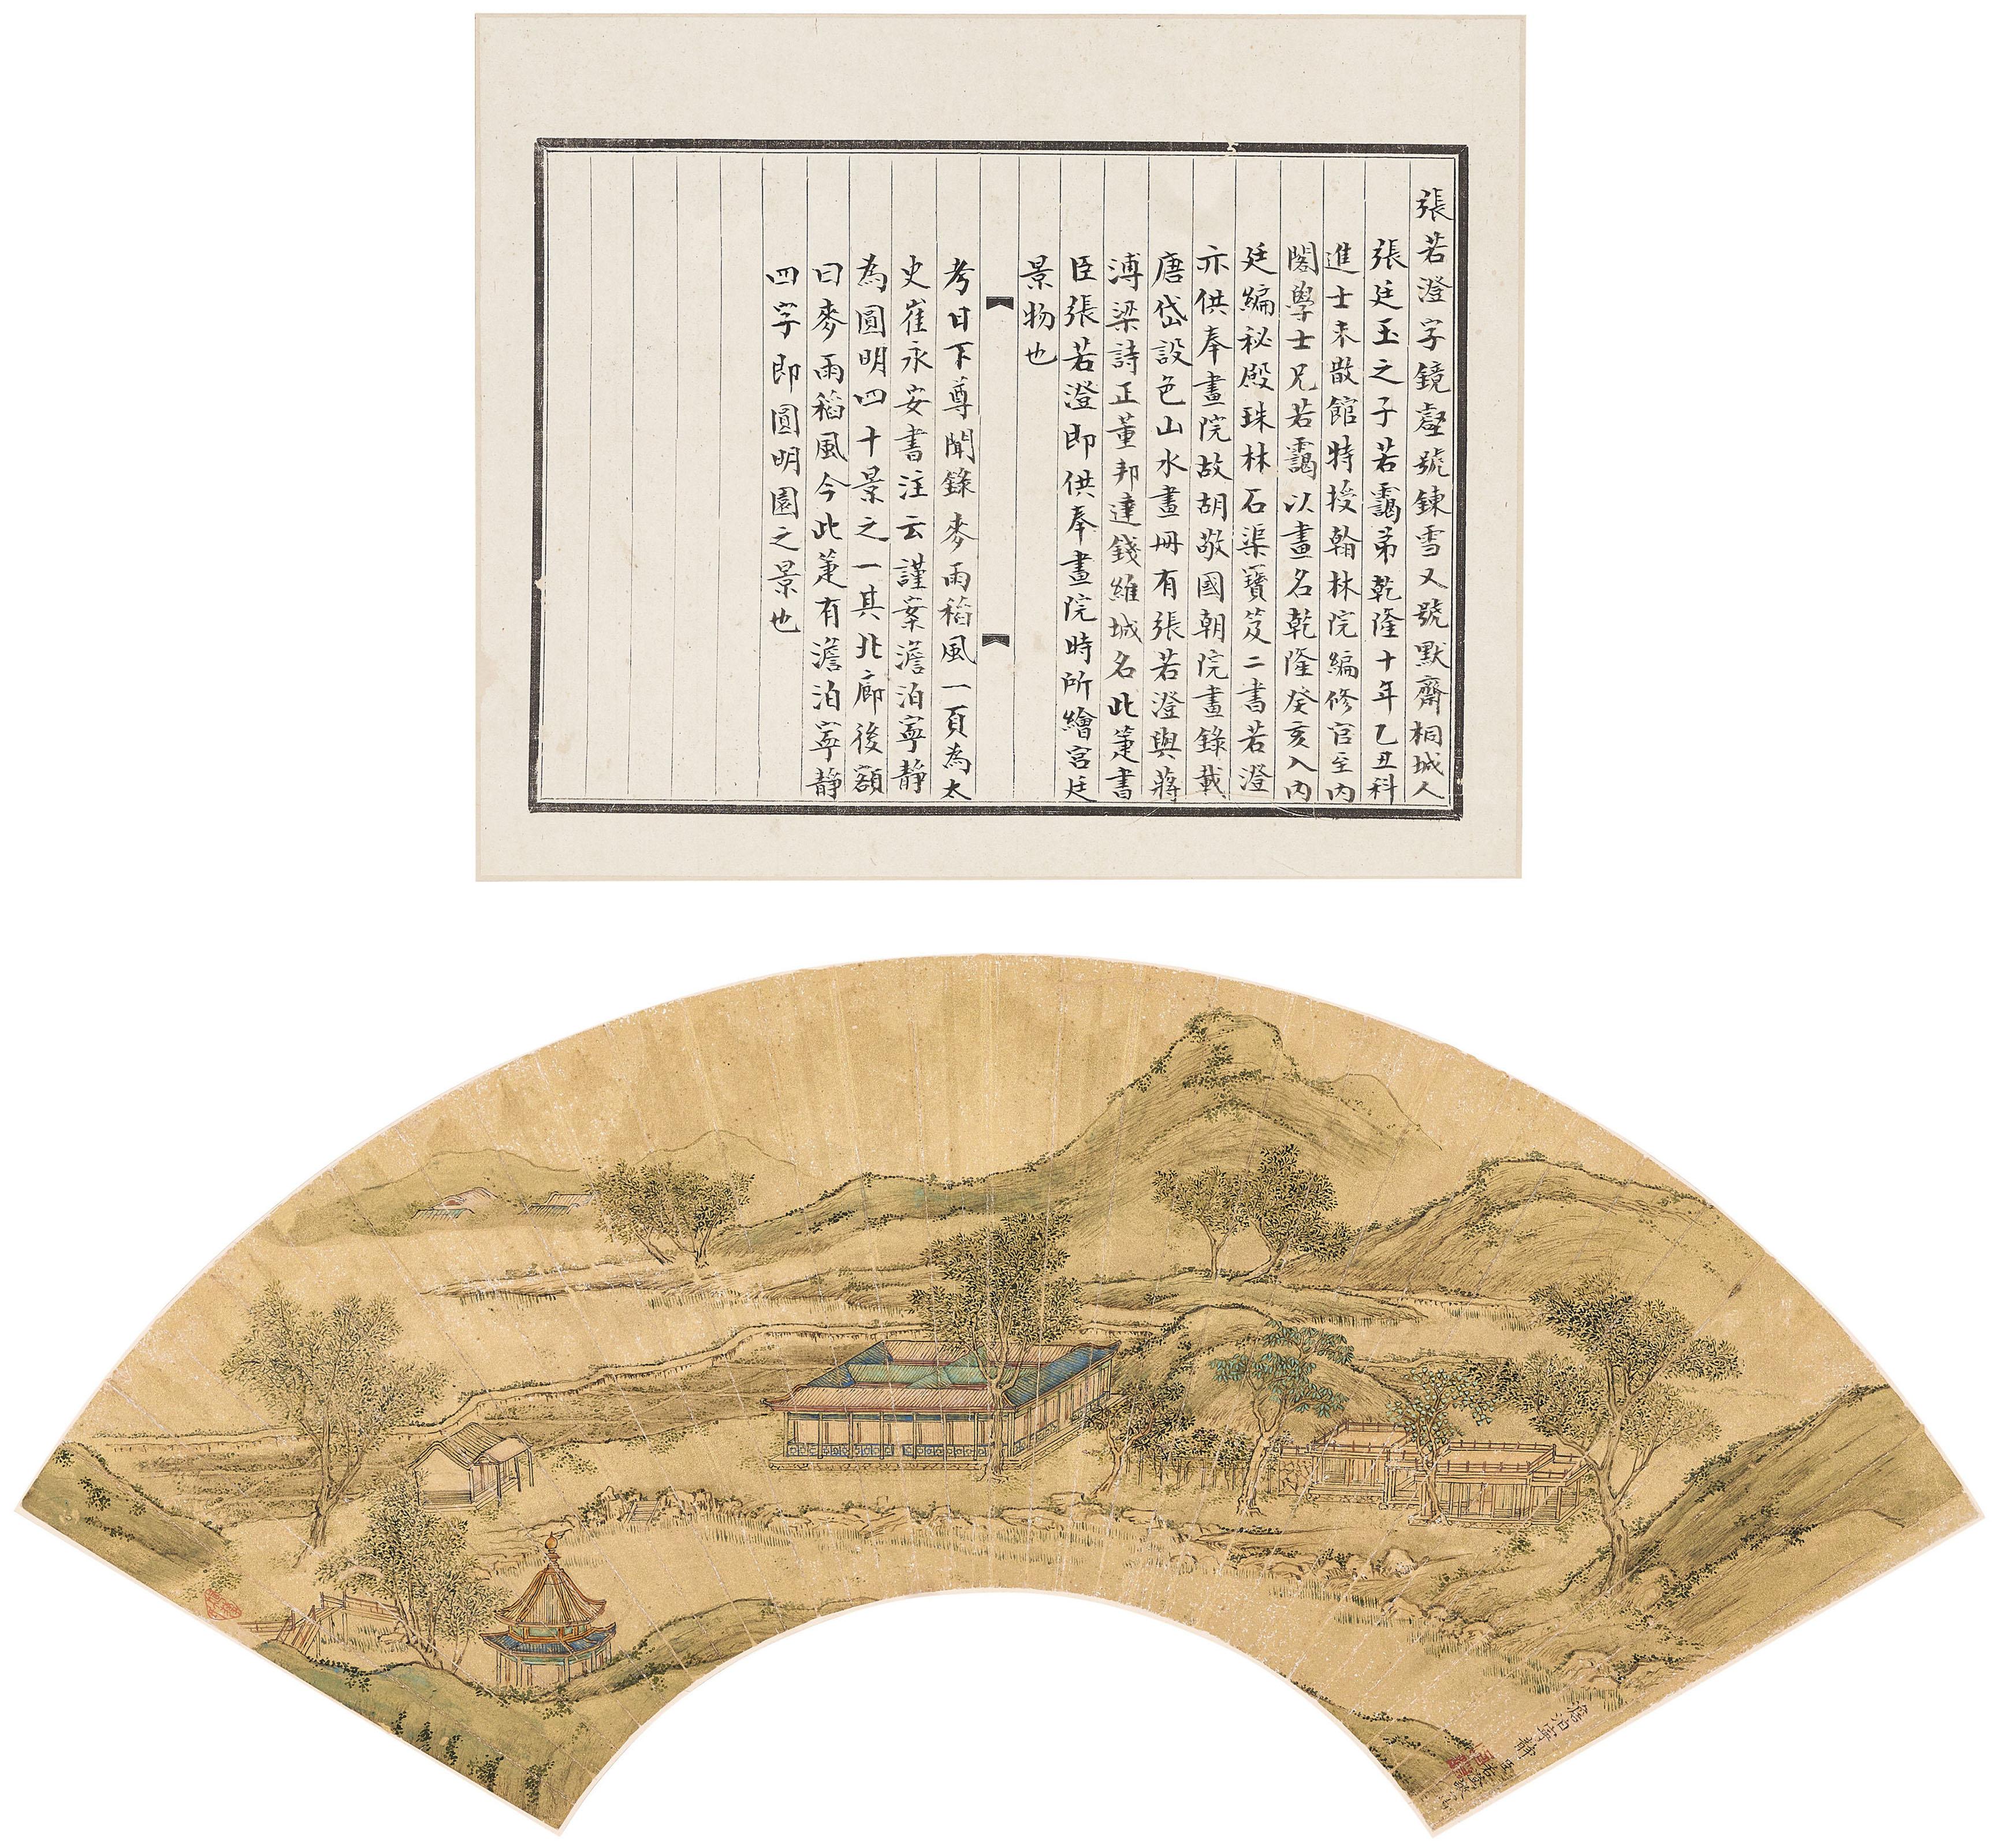 張若澄字鏡壑號鍊雪又號默齋桐城人
張廷玉之子若靄弟乾隆十年乙丑科
進士未散館特授翰林院編修官至内
閣學士兄若靄以畫名乾隆癸亥入内
廷編秘殿珠林石渠寶笈二書若澄
亦供奉畫院故胡敬國朝院畫錄載
唐岱設色山水畫冊有張若澄與蔣
溥梁詩正董邦達錢維城名此箑書
臣張若澄即供奉畫院時所繪宮廷
景物也
考日下尊聞錄麥雨稻風一頁為太
史崔永安書注云謹案澹泊寧静
為圓明四十景之一其北廊後額
曰麥雨稻風今此箑有澹泊寧静
四字即圓明園之景也
澹泊寧静
臣張若澄